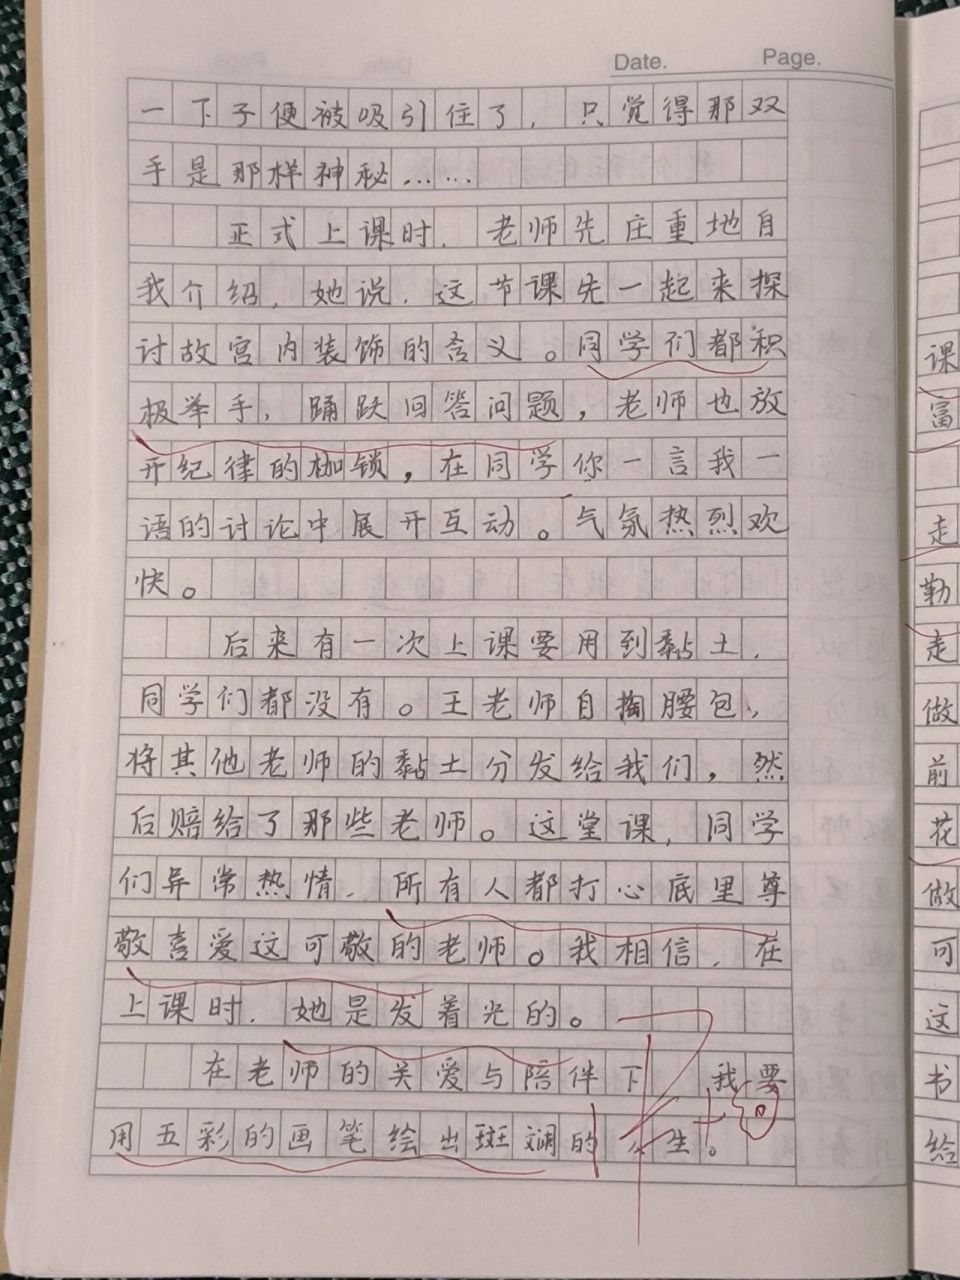 Date. Page.
一下子便被吸引住了，只觉得那双
手是那样神秘……
正式上课时，老师先庄重地自
我介绍，她说，这节课先一起来探
讨故宫内装饰的含义。同学们都积
极举手，踊跃回答问题，老师也放
开纪律的枷锁，在同学你一言我一
语的讨论中展开互动。气氛热烈欢
快。
后来有一次上课要用到黏土，
同学们都没有。王老师自掏腰包，
将其他老师的黏土分发给我们，然
后赔给了那些老师。这堂课，同学
们异常热情，所有人都打心底里尊
敬喜爱这可敬的老师。我相信，在
上课时，她是发着光的。
在老师的关爱与陪伴下，我要
用五彩的画笔绘出斑斓的人生。
课
富
走
勤
走
做
前
花
做
可
这
书
给